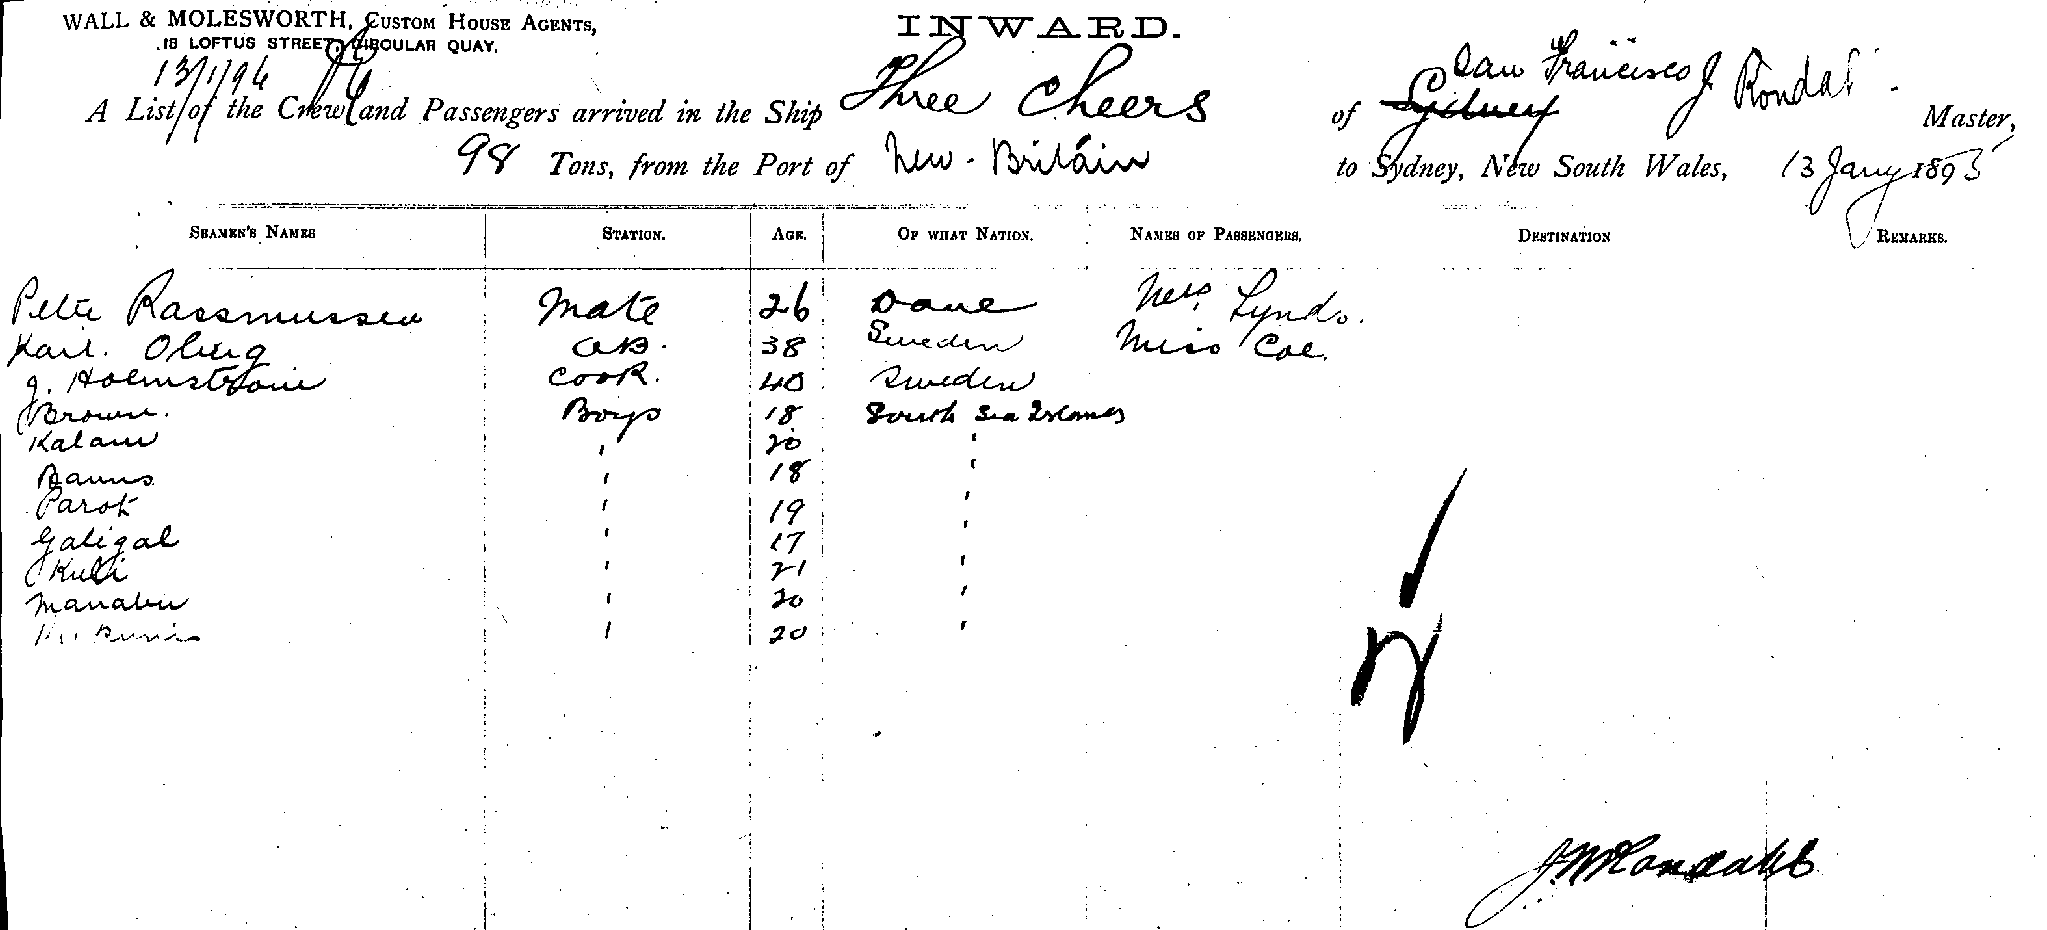 WALL & MOLESWORTH, CUSTOM HOUSE AGENTS,
18 LOFTUS STREET, CIRCULAR QUAY.
INWARD.
13/1/96
San Francisco J Rondal
A List of the Crew and Passengers arrived in the Ship Three Cheers of Sydney Master,
98 Tons, from the Port of New Britain to Sydney, New South Wales, 13 Jany 1895
SEAMEN'S NAMES STATION. AGE. OF WHAT NATION. NAMES OF PASSENGERS. DESTINATION REMARKS.
Pete Rassmussen Mate 26 Dane Lynds.
Karl. Oberg AB. 38 Sweden Miss Coe.
J. Holmstrom Cook. 40 Sweden
Brown. Boys 18 South Sea Islands
Kalam ' 20 '
' 18 '
Parot ' 19 '
Galigal ' 17 '
Kuli ' 21 '
Manabu ' 20 '
' 20 '